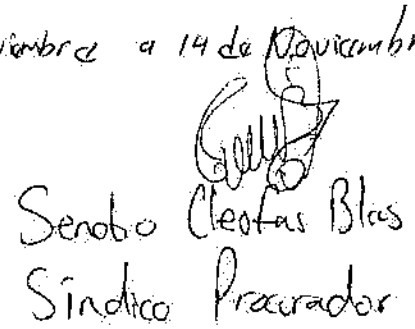 a 14 de Noviembr
Senobio Cleofas Blas
Síndico Procurador